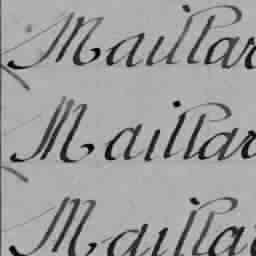 Maillar
Maillar
Maillar